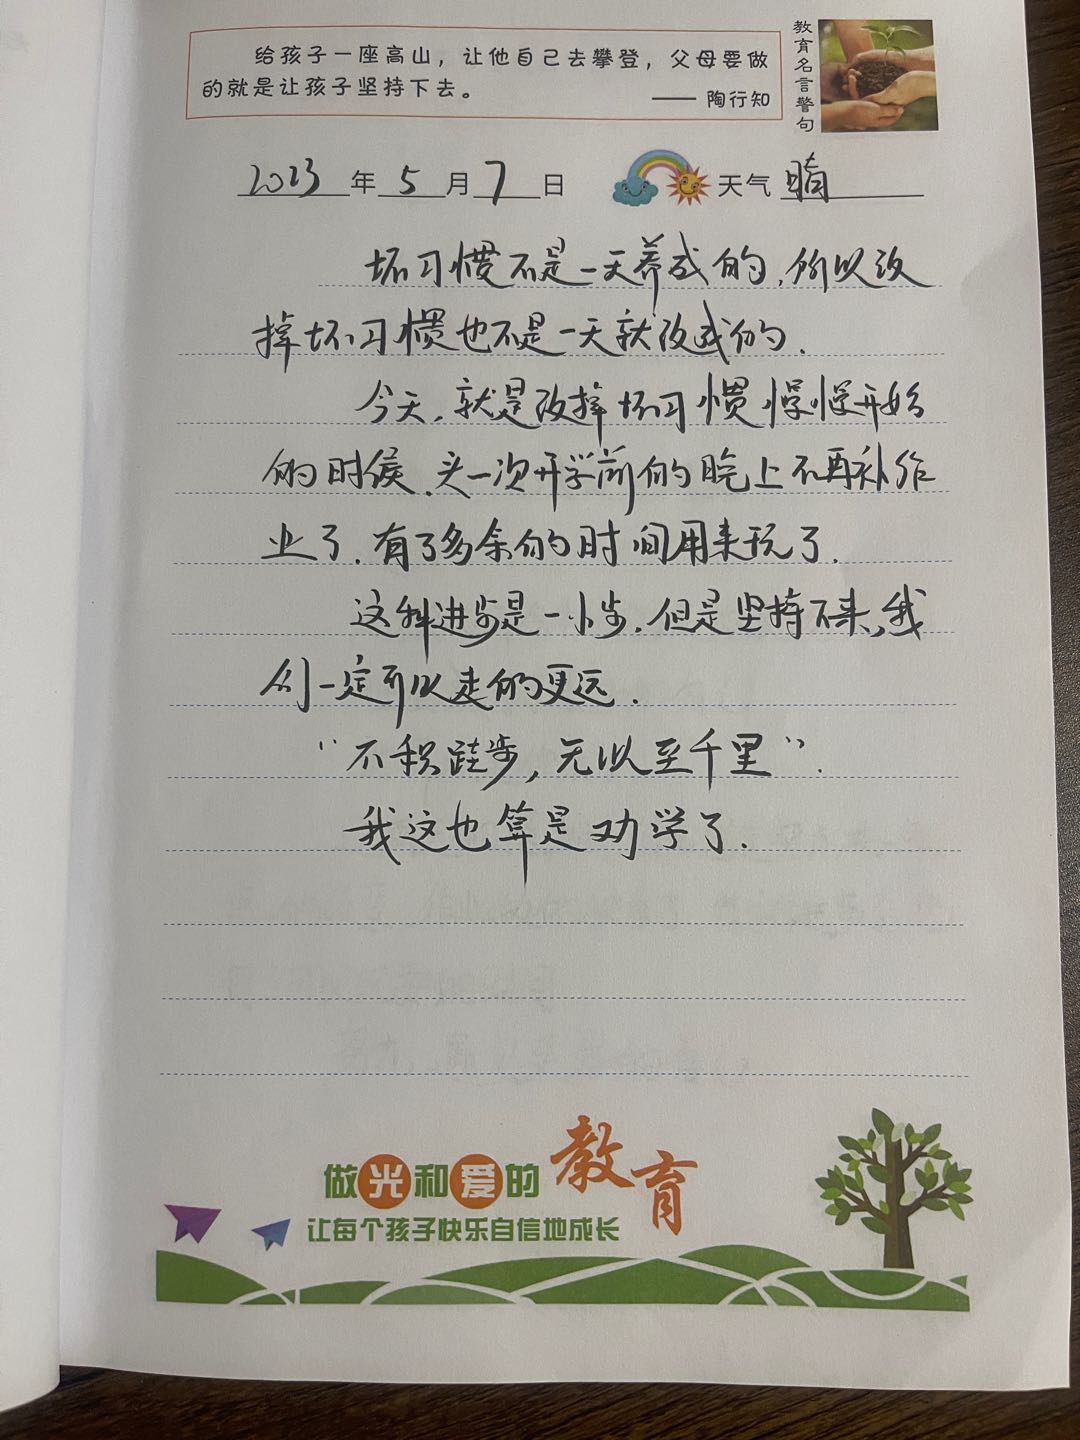 给孩子一座高山，让他自己去攀登，父母要做
的就是让孩子坚持下去。
—— 陶行知
教育名言警句
2023年5月7日 天气 晴
坏习惯不是一天养成的，所以改
掉坏习惯也不是一天就改成的.
今天，就是改掉坏习惯慢慢开始
的时侯，头一次开学前的晚上不再补作
业了.有了多余的时间用来玩了.
这种进步是一小步.但是坚持下来，我
们一定可以走的更远.
“不积跬步，无以至千里”.
我这也算是劝学了.
做光和爱的教育
让每个孩子快乐自信地成长